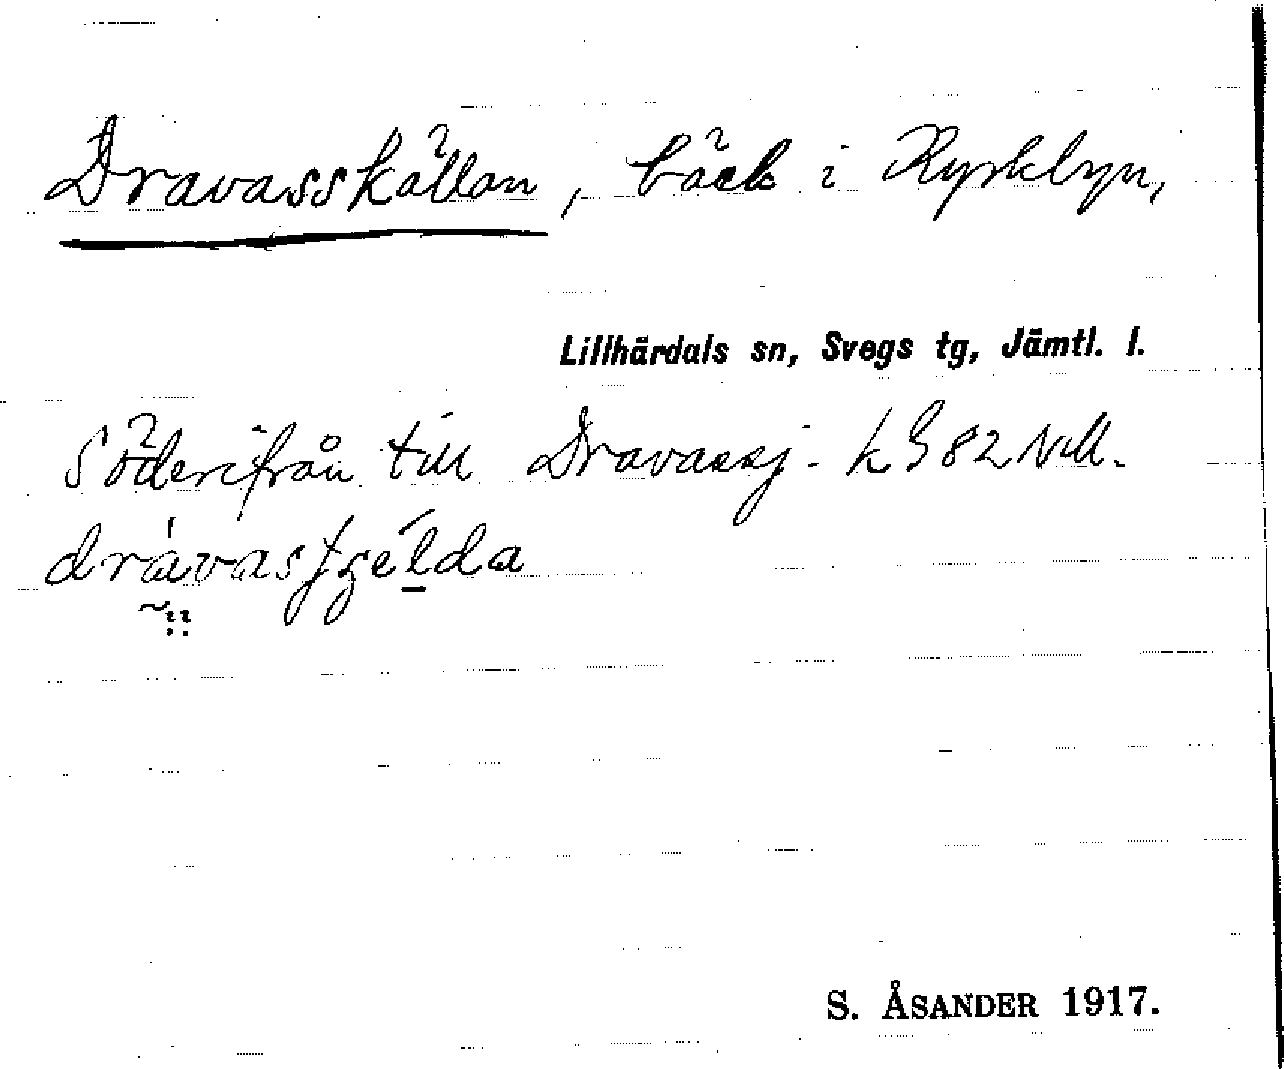 Dravasskällan, bäck i Kyrkbyn,
Lillhärdals sn, Svegs tg, Jämtl. l.
Söderifrån till Dravassj. k G 82 NM.
S. ÅSANDER 1917.